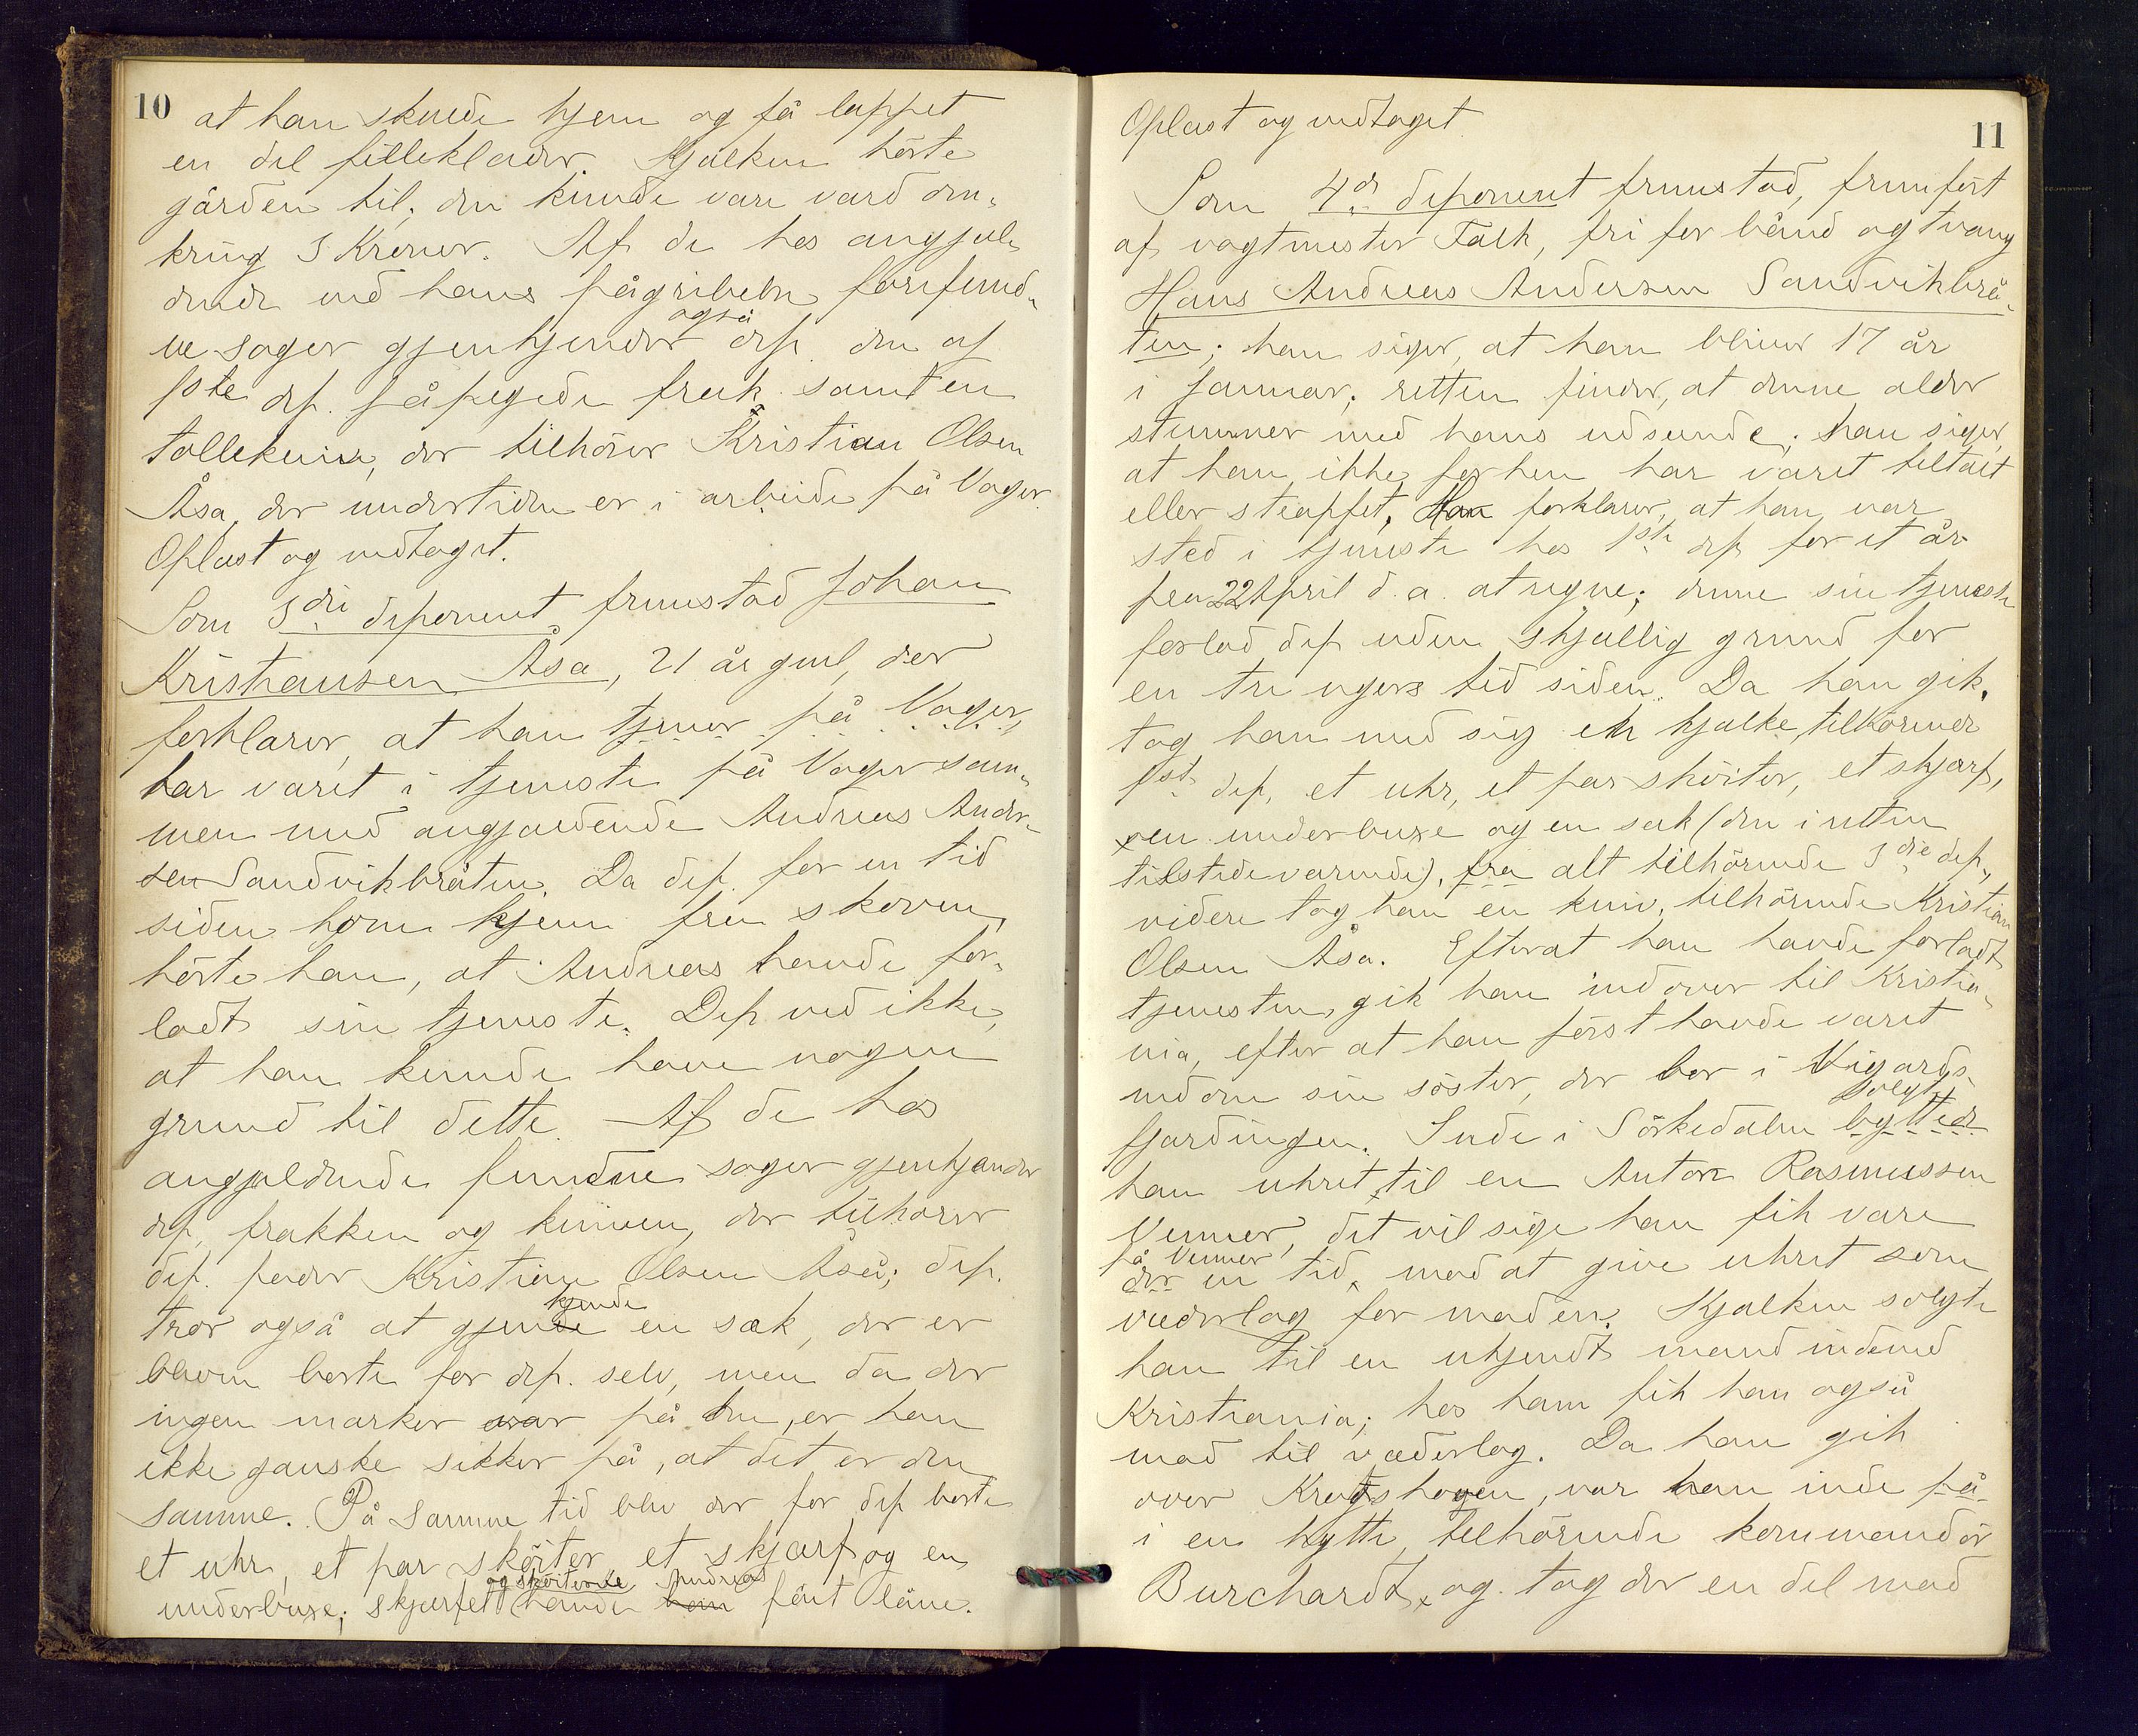 10
at han skulde hjem og få lappet
en del filleklæder. Kjælken hörte
gården til; den kunde være værd om-
kring 3 Kroner. Af de hos angjæl-
dende ved hans pågribelse forefund-
også
ne sager gjenkjender dep. den af
1ste dep. påpegede frak samt en
tollekniv, der tilhörer Kristian Olsen
Åsa, der undertiden er i arbeide på Vager.
Oplæst og vedtaget.
Som 3die deponent fremstod Johan
Kristiansen Åsa, 21 år gml, der
forklarer, at han tjener på Vager,
har været i tjeneste på Vager sam-
men med angjældende Andreas Ander-
sen Sandvikbråten. Da dep. for en tid
siden kom hjem fra skoven,
hörte han, at Andreas havde for-
ladt sin tjeneste. Dep ved ikke,
at han kunde have nogen
grund til dette. Af de hos
angjældende fundne sager gjenkjender
dep. frakken og kniven, der tilhörer
dep. fader Kristian Olsen Åsa; dep.
kjende
tror også at gjende en sæk, der er
bleven borte for dep. selv, men da der
ingen mærker var på den, er han
ikke ganske sikker på, at det er den
samme. På samme tid blev der for dep borte
et uhr, et par sköiter, et skjærf og en
og sköiterne Andreas
underbuxe; skjærfet havde han fået låne.
11
Oplæst og vedtaget.
Som 4de deponent fremstod, fremfört
af vagtmester Falk, fri for bånd og tvang
Hans Andreas Andersen Sandvikbrå-
ten; han siger, at han bliver 17 år
i Januar; retten finder, at denne alder
stemmer med hans udseende; han siger,
at han ikke forhen har været tiltalt
eller straffet. Han forklarer, at han var
sted i tjeneste hos 1ste dep for et år
fra 22 April d. a. at regne; denne sin tjeneste
forlod dep uden skjællig grund for
en tre ugers tid siden. Da han gik,
tog han med sig en kjælke, tilhörende
1ste dep, et uhr, et par sköiter, et skjærf,
en underbuxe og en sæk (den i retten
tilstedeværende), fra alt tilhörende 3die dep,
videre tog han en kniv, tilhörende Kristian
Olsen Åsa. Efterat han havde forladt
tjenesten, gik han indover til Kristia-
nia, efter at han först havde været
nedom sin söster, der bor i Vigards-
solgt
fjærdingen. Inde i Sörkedalen byttede
han uhret til en Anton Rasmussen
Venner, det vil sige han fik være
på Venner
der en tid, mod at give uhret som
vederlag for maden. Kjælken solgte
han til en ukjendt mand indved
Kristiania; hos ham fik han også
mad til vederlag. Da han gik
over Kragskogen, var han inde på
i en hytte, tilhörende kommandör
Burchardt, og tog der en del mad